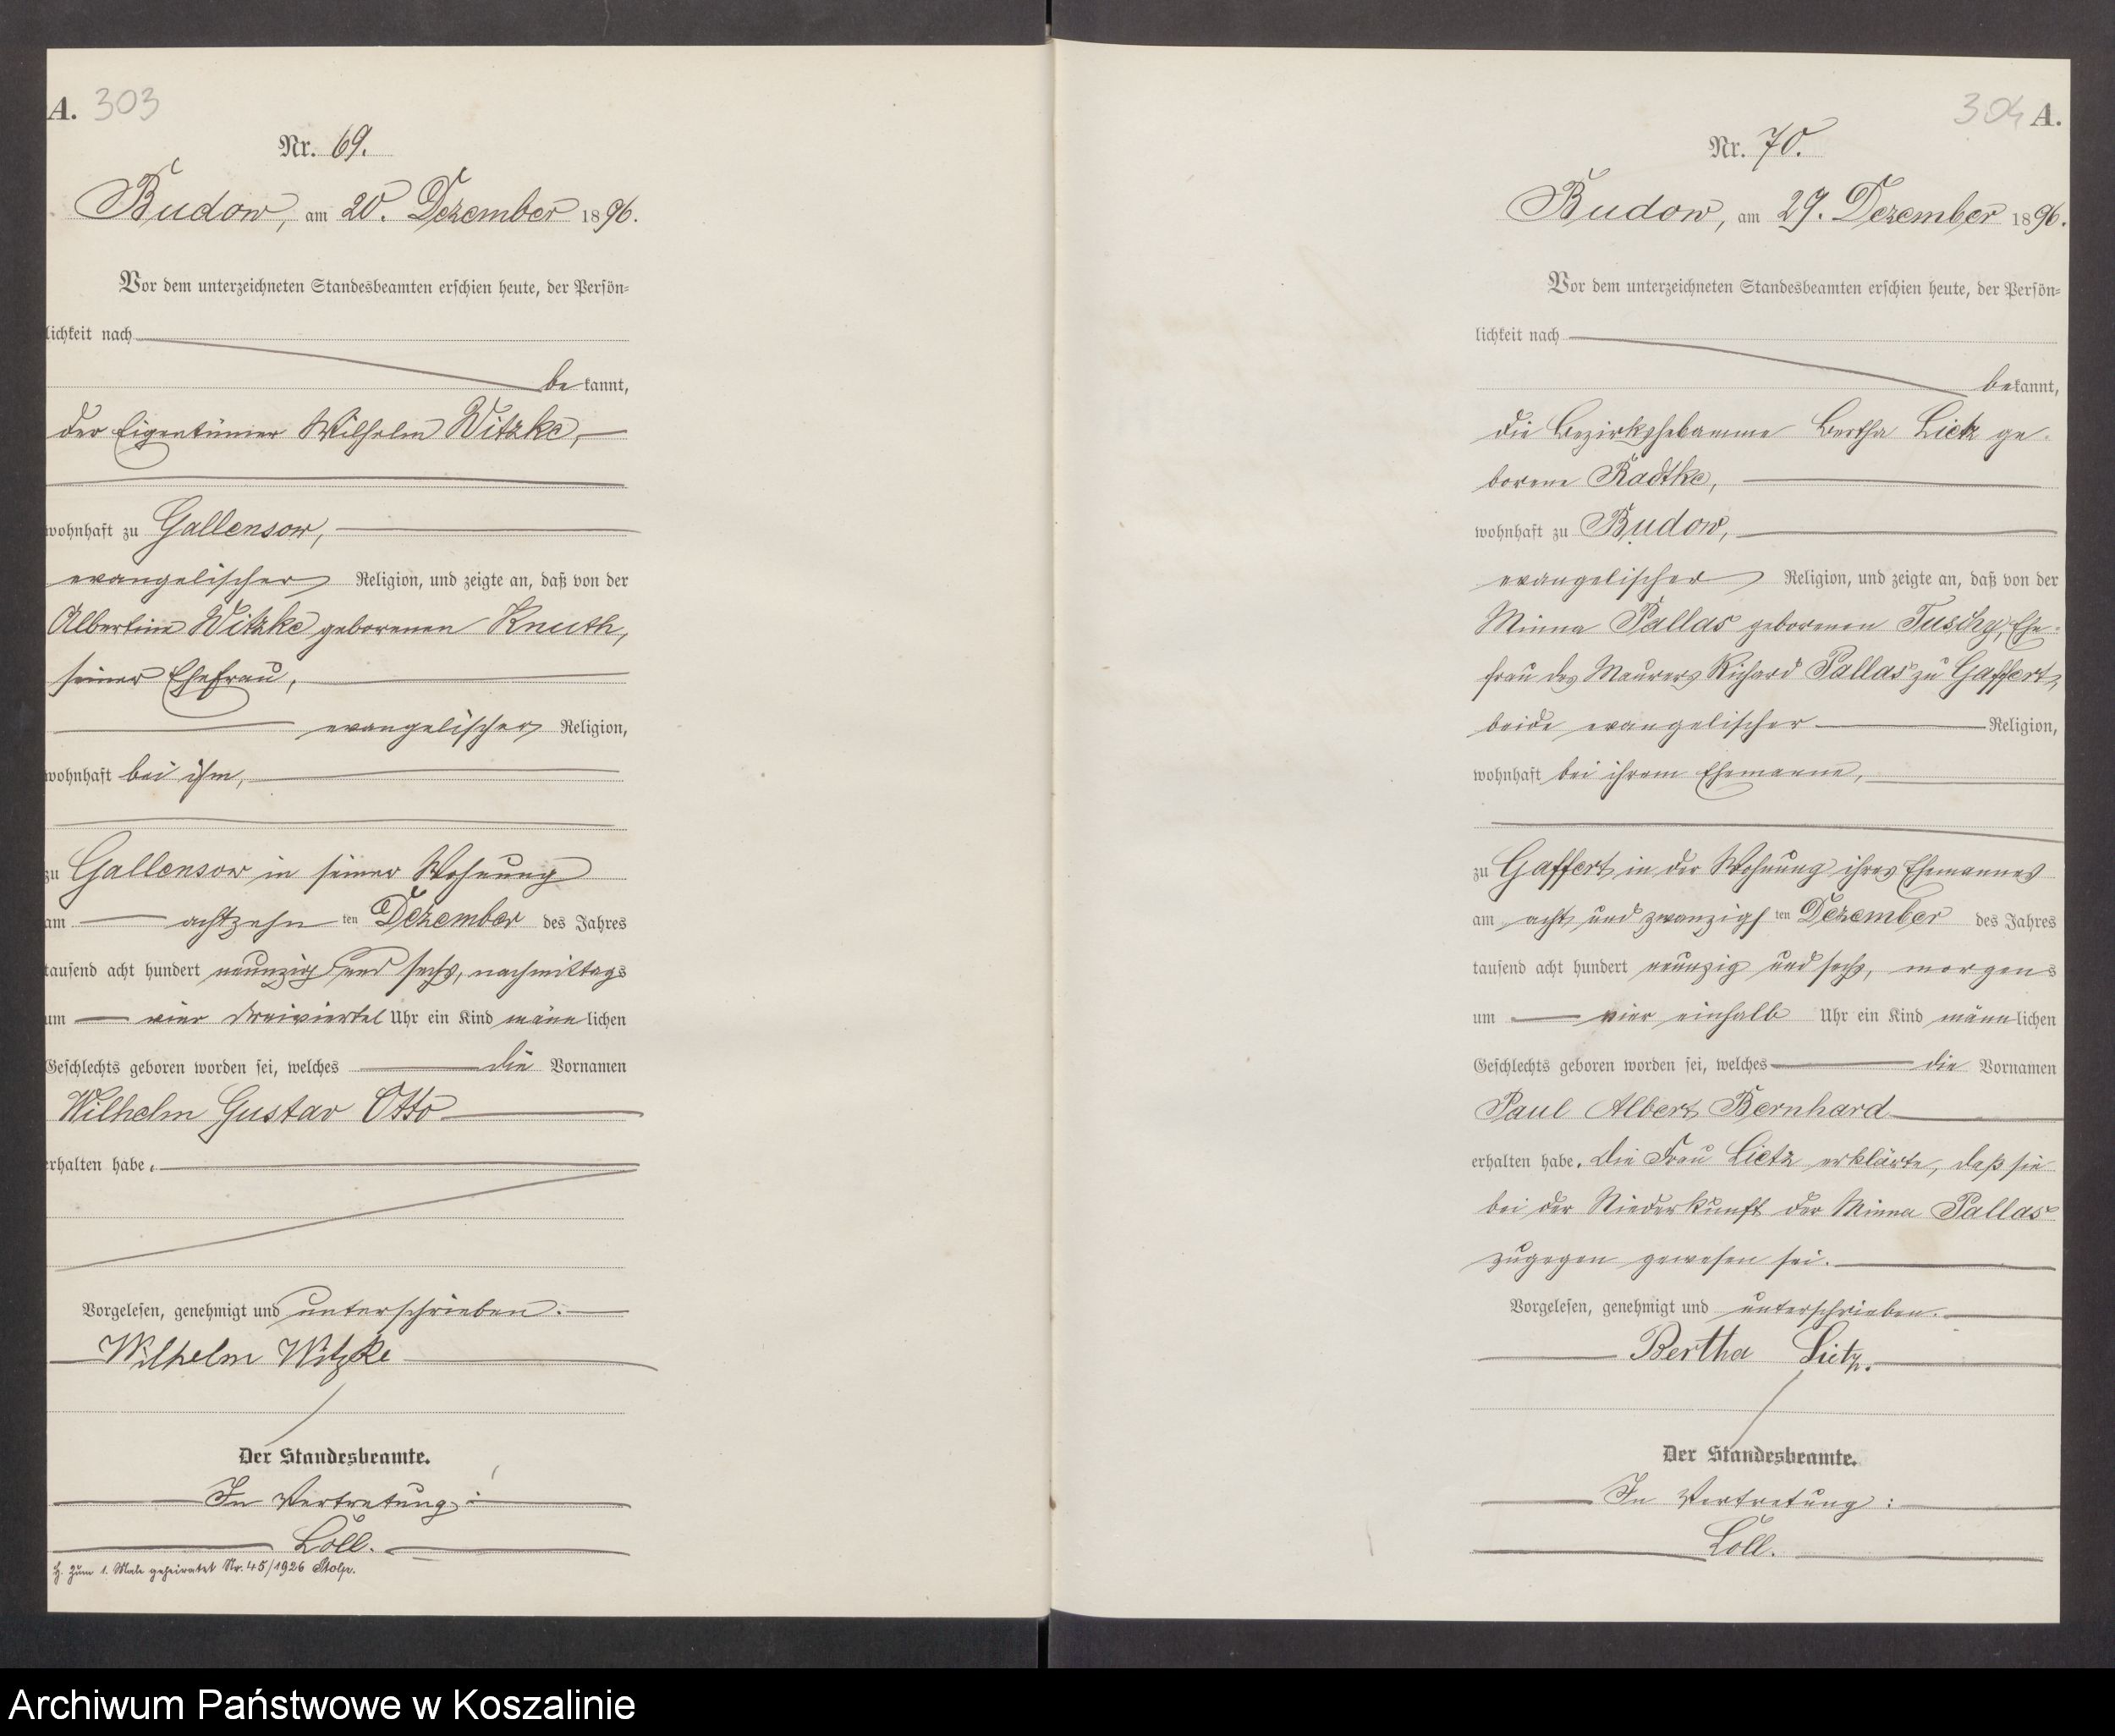 A. 303
Nr. 69.
Budow, am 20. Dezember 1896.
Vor dem unterzeichneten Standesbeamten erschien heute, der Persön=
lichkeit nach
bekannt,
der Eigentümer Wilhelm Witzke,
wohnhaft zu Gallensow,
evangelischer Religion, und zeigte an, daß von der
Albertine Witzke geborenen Knuth,
seiner Ehefrau,
evangelischer Religion,
wohnhaft bei ihm,
zu Gallensow in seiner Wohnung
am achtzehn ten Dezember des Jahres
tausend acht hundert neunzig und sechs, nachmittags
um vier dreiviertel Uhr ein Kind männlichen
Geschlechts geboren worden sei, welches die Vornamen
Wilhelm Gustav Otto
erhalten habe.
Vorgelesen, genehmigt und unterschrieben.
Wilhelm Witzke
Der Standesbeamte.
In Vertretung:
Löll.
H. zum 1. Male geheiratet Nr. 45/1926 Stolp.
304 A.
Nr. 70.
Budow, am 29. Dezember 1896.
Vor dem unterzeichneten Standesbeamten erschien heute, der Persön=
lichkeit nach
bekannt,
die Bezirkshebamme Bertha Lietz ge-
borene Radtke,
wohnhaft zu Budow,
evangelischer Religion, und zeigte an, daß von der
Minna Pallas geborenen Ehe-
frau des Maurers Richard Pallas zu Gaffert,
beide evangelischer Religion,
wohnhaft bei ihrem Ehemanne,
zu Gaffert in der Wohnung ihres Ehemannes
am acht und zwanzigs ten Dezember des Jahres
tausend acht hundert neunzig und sechs, morgens
um vier einhalb Uhr ein Kind männlichen
Geschlechts geboren worden sei, welches die Vornamen
Paul Albert Bernhard
erhalten habe. Die Frau Lietz erklärte, daß sie
bei der Niederkunft der Minna Pallas
zugegen gewesen sei.
Vorgelesen, genehmigt und unterschrieben.
Bertha Lietz.
Der Standesbeamte.
In Vertretung:
Löll.
Archiwum Państwowe w Koszalinie